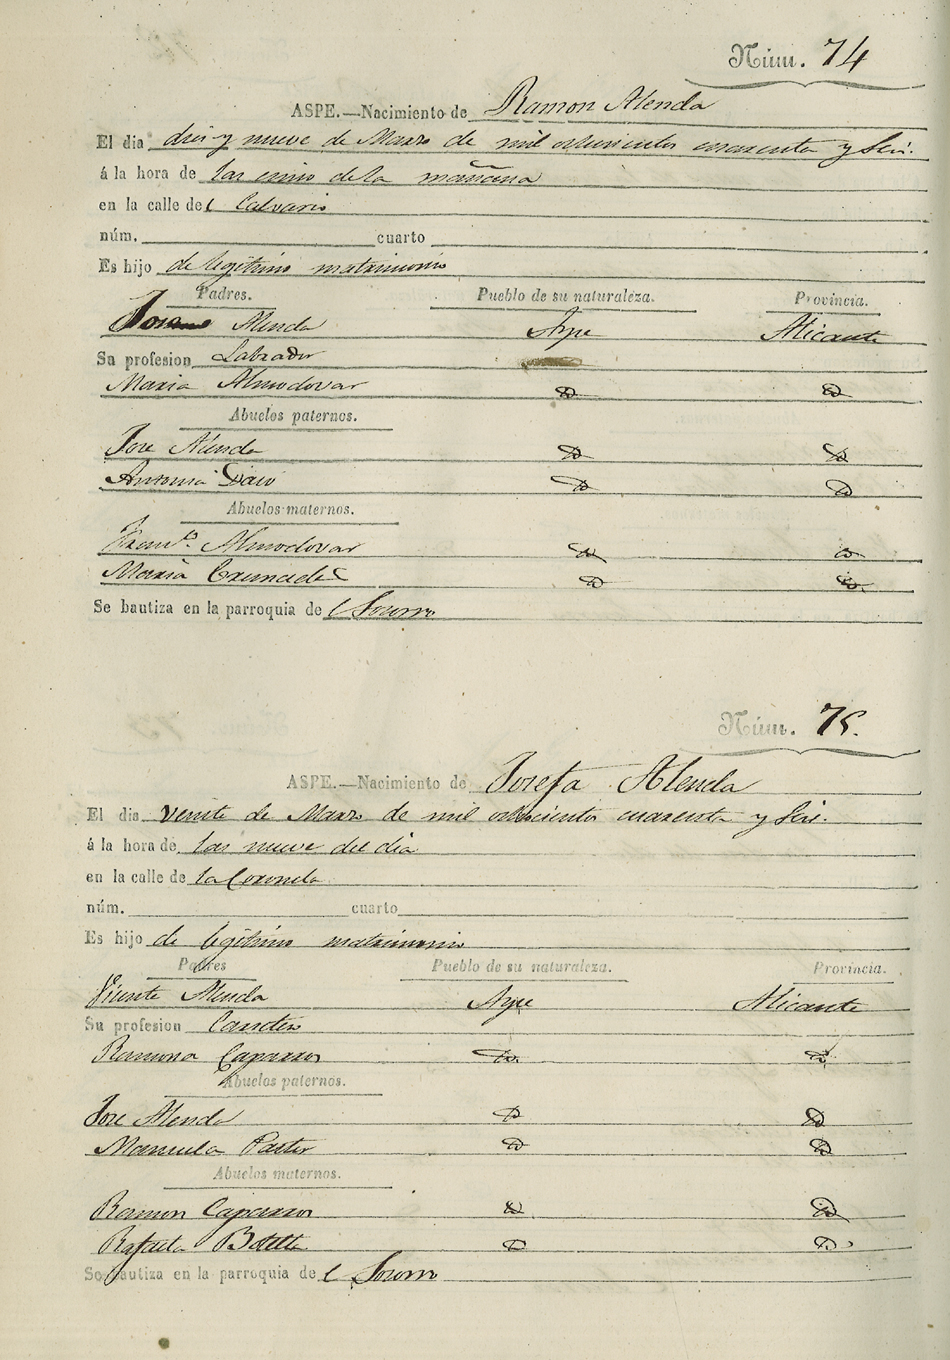 Núm. 74
ASPE.—Nacimiento de Ramon Alenda
El dia diez y nueve de Marzo de mil ochocientos cuarenta y Seis.
á la hora de las cinco de la mañana
en la calle del Calvario
núm. cuarto
Es hijo de legitimo matrimonio
Padres. Pueblo de su naturaleza. Provincia.
Alenda Aspe Alicante
Su profesion Labrador
Maria Almodovar D D
Abuelos paternos.
Jose Alenda D D
Antonia D D
Abuelos maternos.
Franco. Almodovar D D
Maria D D
Se bautiza en la parroquia del Socorro
Núm. 75.
ASPE.—Nacimiento de Josefa Alenda
El dia veinte de Marzo de mil ochocientos cuarenta y Seis.
á la hora de las nueve del dia
en la calle de la Coronela
núm. cuarto
Es hijo de legitimo matrimonio
Padres Pueblo de su naturaleza. Provincia.
Vicente Alenda Aspe Alicante
Su profesion Cantero
Ramona Caparros D D
Abuelos paternos.
Jose Alenda D D
Manuela Pastor D D
Abuelos maternos.
Ramon Caparros D D
Rafaela Botella D D
Se bautiza en la parroquia del Socorro